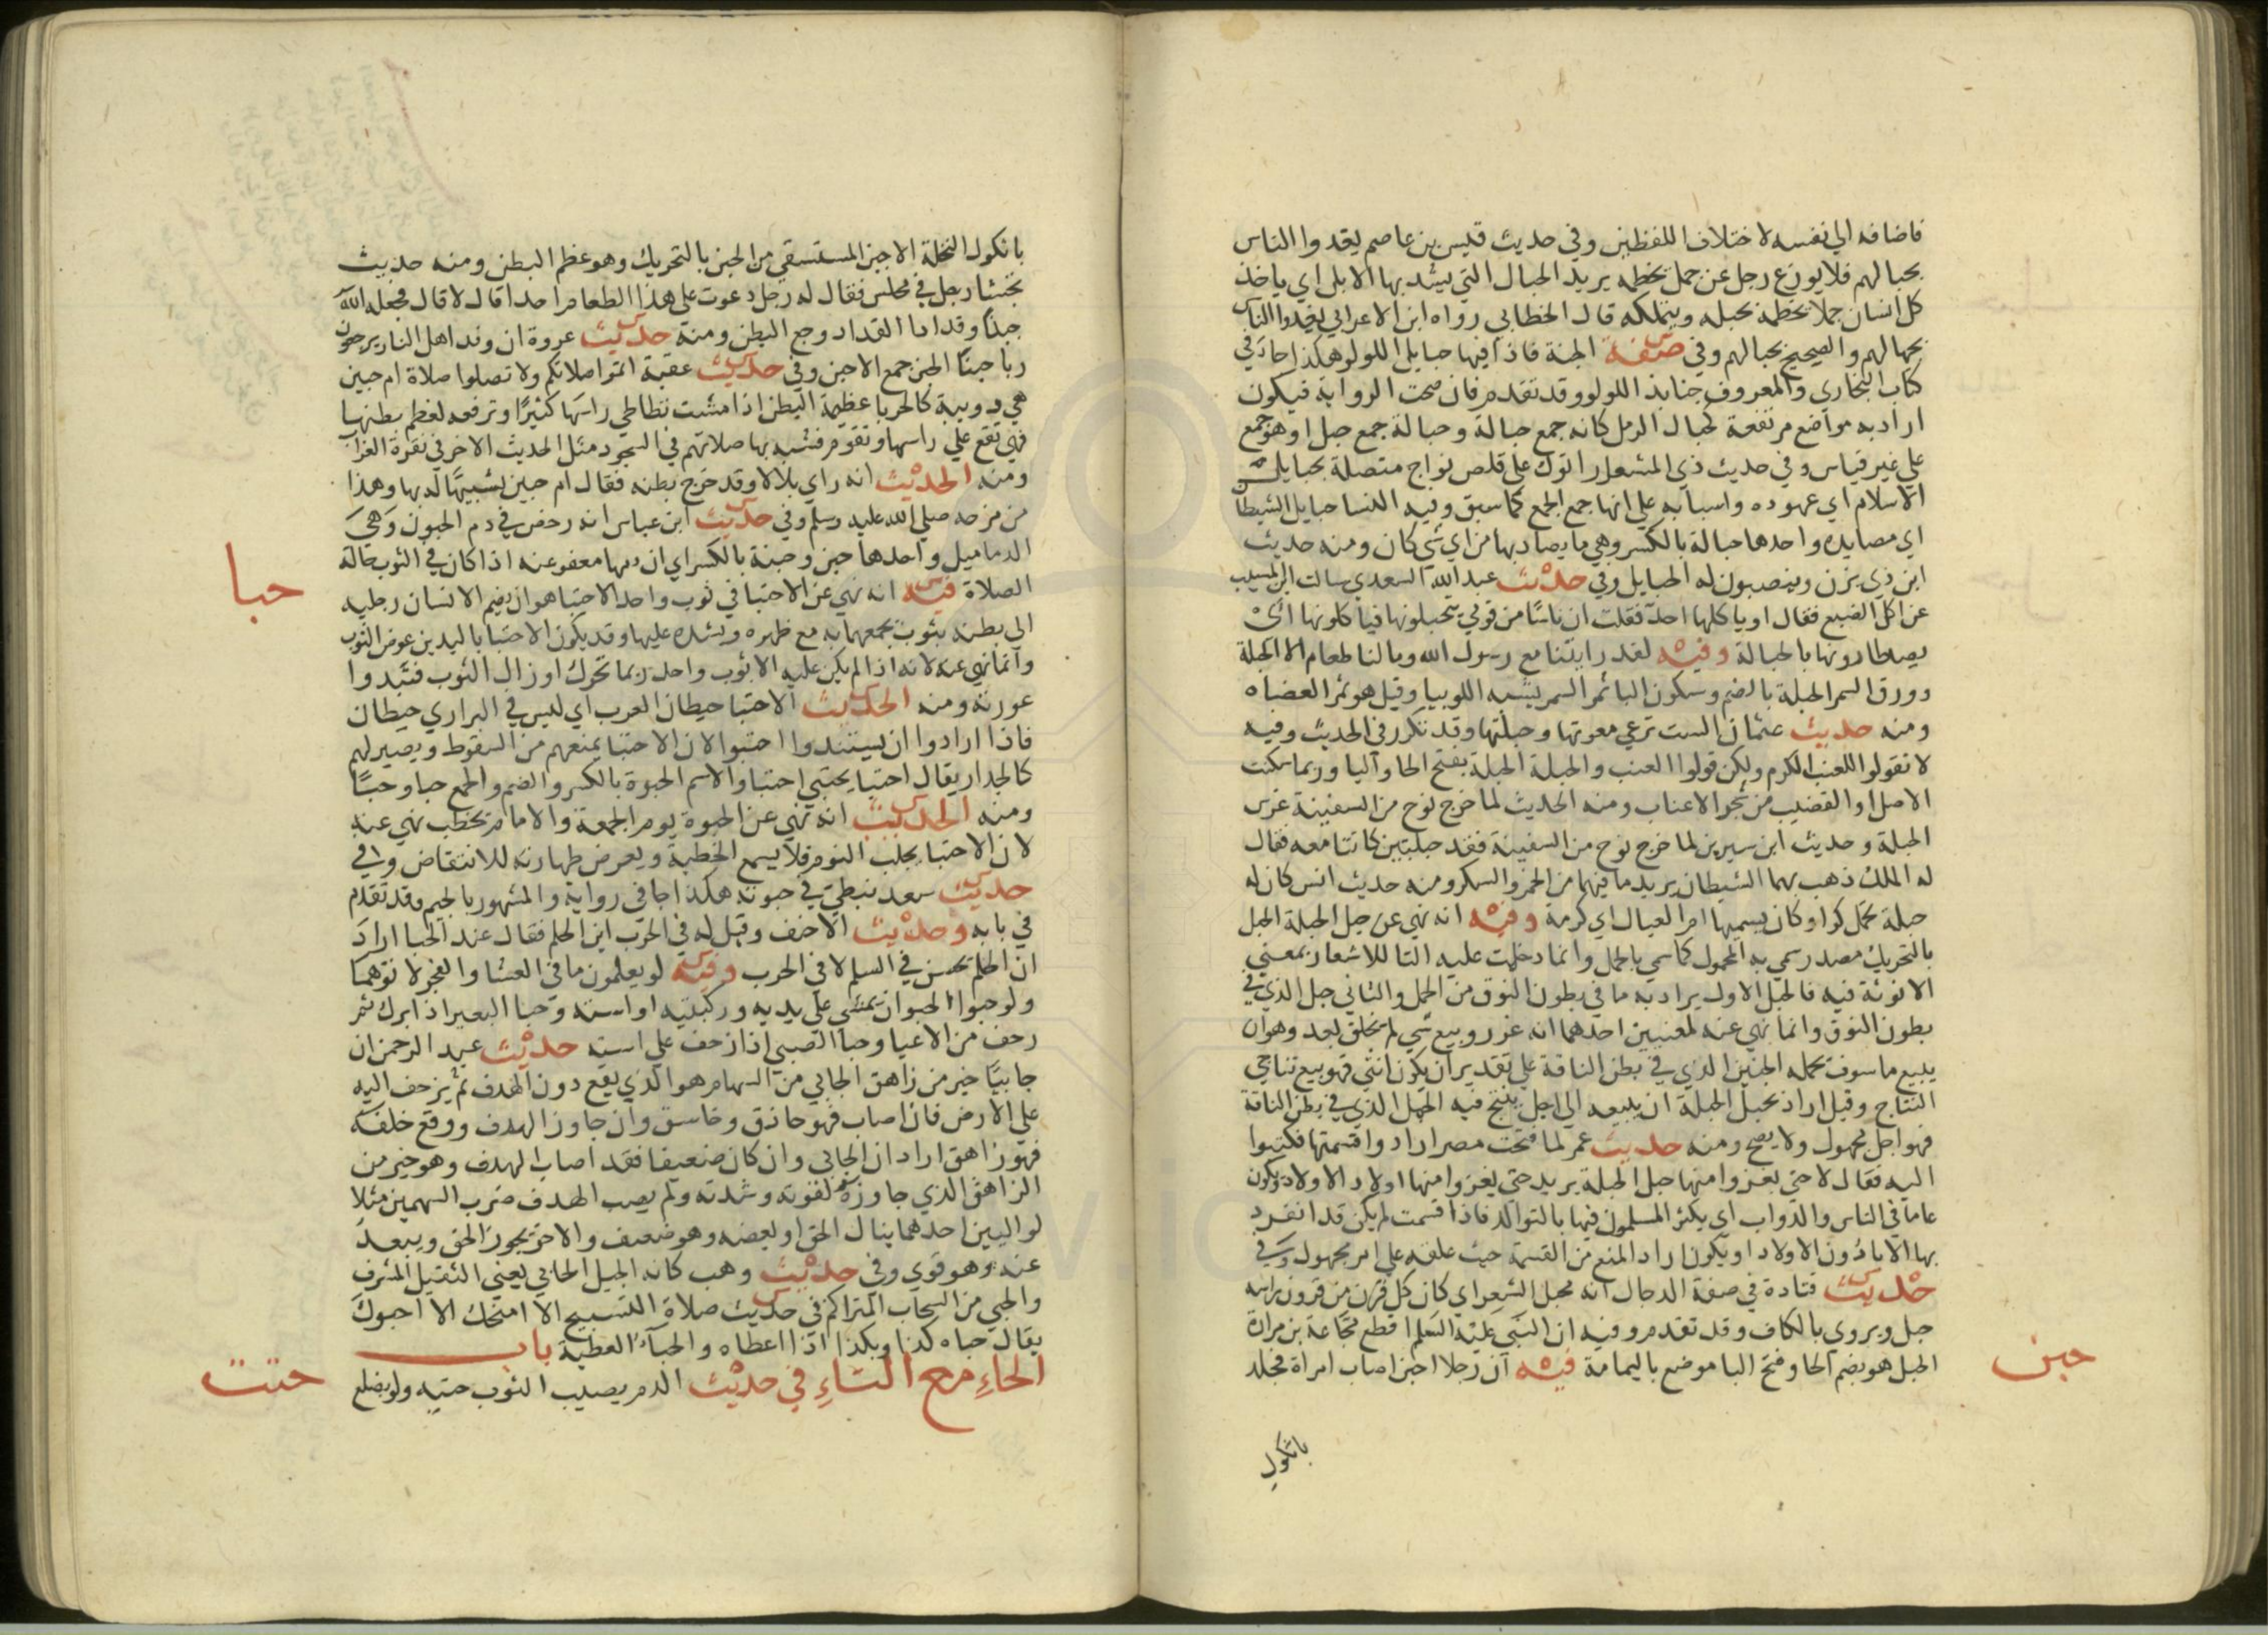 فاضافه الي نفسه لاختلاف اللفظين وفي حديث قيس بن عاصم يغدوا الناس
بحبالهم فلا يوزع رجل عن جمل يخطمه يريد الحبال التي يشد بها الابل اي ياخذ
كل انسان جملا يخطمه بحبله ويتملكه قال الخطابي رواه ابن الاعرابي يغدوا الناس
بجمالهم والصحيح بحبالهم وفي صفة الجنة فاذا فيها حبايل اللولو هكذا جا في
كتاب البخاري والمعروف جنابذ اللولو وقد تقدم فان صحت الرواية فيكون
اراد به مواضع مرتفعة كحبال الرمل كانه جمع حبالة وحبالة جمع حبل او هو جمع
علي غير قياس وفي حديث ذي المشعار اتوك علي قلص نواج متصلة بحبايل
الاسلام اي عهوده واسبابه علي انها جمع الجمع كما سبق وفيه النسا حبايل الشيطان
اي مصايده واحدها حبالة بالكسر وهي ما يصاد بها من اي شي كان ومنه حديث
ابن ذي يزن وينصبون له الحبايل وفي حديث عبد الله السعدي سالت ابن المسيب
عن اكل الضبع فقال او ياكلها احد فقلت ان ناسا من قومي يتحبلونها فياكلونها اي
يصطادونها بالحبالة وفيه لقد رايتنا مع رسول الله وما لنا طعام الا الحبلة
وورق السمر الحبلة بالضم وسكون البا ثمر السمر يشبه اللوبيا وقيل هو ثمر العضاه
ومنه حديث عثمان الست ترعي معوتها وحبلتها وقد تكرر في الحديث وفيه
لا تقولوا للعنب الكرم ولكن قولوا العنب والحبلة الحبلة بفتح الحا والبا وربما سكنت
الاصل او القضيب من شجر الاعناب ومنه الحديث لما خرج نوح من السفينة غرس
الحبلة وحديث ابن سيرين لما خرج نوح من السفينة فقد حبلتين كانتا معه فقال
له الملك ذهب بهما الشيطان يريد ما فيهما من الخمر والسكر ومنه حديث انس كان له
حبلة تحمل كرا وكان يسميها ام العيال اي كرمة وفيه انه نهي عن حبل الحبلة الحبل
بالتحريك مصدر سمي به المحمول كما سمي بالحمل وانما دخلت عليه التا للاشعار بمعني
الانوثة فيه فالحبل الاول يراد به ما في بطون النوق من الحمل والثاني حبل الذي في
بطون النوق وانما نهي عنه لمعنيين احدهما انه غرر وبيع شي لم يخلق بعد وهو ان
يبيع ما سوف يحمله الجنين الذي في بطن الناقة علي تقدير ان يكون انثي فهو بيع نتاج
النتاج وقيل اراد بحبل الحبلة ان يبيعه الي اجل ينتج فيه الحمل الذي في بطن الناقة
فهو اجل مجهول ولا يصح ومنه حديث عمر لما فتحت مصر ارادوا قسمتها فكتبوا
اليه فقال لا حتي يغزوا منها حبل الحبلة يريد حتي يغزوا منها اولاد الاولاد ويكون
عاما في الناس والدواب اي يكثر المسلمون فيها بالتوالد فاذا قسمت لم يكن قد انفرد
بها الابا دون الاولاد او يكون اراد المنع من القسمة حيث علقه علي امر مجهول وفي
حديث قتادة في صفة الدجال انه محبل الشعر اي كان كل قرن من قرون راسه
حبل ويروي بالكاف وقد تقدم وفيه ان النبي عليه السلم اقطع مجاعة بن مرارة
الحبل هو بضم الحا وفتح البا موضع باليمامة فيه ان رجلا احبن اصاب امراة فجلد
حبن
باثكول
باثكول النخلة الاحبن المستسقي من الحبن بالتحريك وهو عظم البطن ومنه حديث
تجشا رجل في مجلس فقال له رجل دعوت علي هذا الطعام احدا قال لا قال فجعله الله
حبنا وقدادا القداد وجع البطن ومنه حديث عروة ان وفد اهل النار يرجعون
ربا حبنا الحبن جمع الاحبن وفي حديث عقبة اتموا صلاتكم ولا تصلوا صلاة ام حبين
هي دويبة كالحربا عظيمة البطن اذا مشت تطاطي راسها كثيرا وترفعه لعظم بطنها
فهي تقع علي راسها وتقوم فشبه بها صلاتهم في السجود مثل الحديث الاخر في نقرة الغراب
ومنه الحديث انه راي بلالا وقد خرج بطنه فقال ام حبين تشبيها له بها وهذا
من مزحه صلي الله عليه وسلم وفي حديث ابن عباس انه رخص في دم الحبون وهي
الدماميل واحدها حبن وحبنة بالكسر اي ان دمها معفو عنه اذا كان في الثوب حالة
الصلاة فيه انه نهي عن الاحتبا في ثوب واحد الاحتبا هو ان يضم الانسان رجليه
حبا
الي بطنه بثوب يجمعهما به مع ظهره ويشده عليها وقد يكون الاحتبا باليدين عوض الثوب
وانما نهي عنه لانه اذا لم يكن عليه الا ثوب واحد ربما تحرك او زال الثوب فتبدوا
عورته ومنه الحديث الاحتبا حيطان العرب اي ليس في البراري حيطان
فاذا ارادوا ان يستندوا احتبوا لان الاحتبا يمنعهم من السقوط ويصير لهم
كالجدار يقال احتبا يحتبي احتبا والاسم الحبوة بالكسر والضم والجمع حبا وحبا
ومنه الحديث انه نهي عن الحبوة يوم الجمعة والامام يخطب نهي عنه
لان الاحتبا يجلب النوم فلا يسمع الخطبة ويعرض طهارته للانتقاض وفي
حديث سعد نبطي في حبوته هكذا جا في رواية والمشهور بالجيم وقد تقدم
في بابه وحديث الاحنف وقيل له في الحرب اين الحلم فقال عند الحبا اراد
ان الحلم يحسن في السلم لا في الحرب وفيه لو يعلمون ما في العشا والفجر لاتوهما
ولو حبوا الحبو ان يمشي علي يديه وركبتيه او استه وحبا البعير اذا برك ثم
زحف من الاعيا وحبا الصبي اذا زحف علي استه حديث عبد الرحمن ان
حابيا خير من زاهق الحابي من السهام هو الذي يقع دون الهدف ثم يزحف اليه
علي الارض فان اصاب فهو حاذق وخاسق وان جاوز الهدف ووقع خلفه
فهو زاهق اراد ان الحابي وان كان ضعيفا فقد اصاب الهدف وهو خير من
الزاهق الذي جاوزه لقوته وشدته ولم يصب الهدف ضرب السهمين مثلا
لواليين احدهما ينال الحق او بعضه وهو ضعيف والاخر يجوز الحق ويبعد
عنه وهو قوي وفي حديث وهب كانه الجبل الحابي يعني الثقيل المشرف
والحبي من السحاب المتراكم في حديث صلاة التسبيح الا امنحك الا احبوك
يقال حباه كذا وبكذا اذا اعطاه والحبآء العطية باب
الحاءِ مع التاءِ في حديث الدم يصيب الثوب حتيه ولو بضلع
حتت